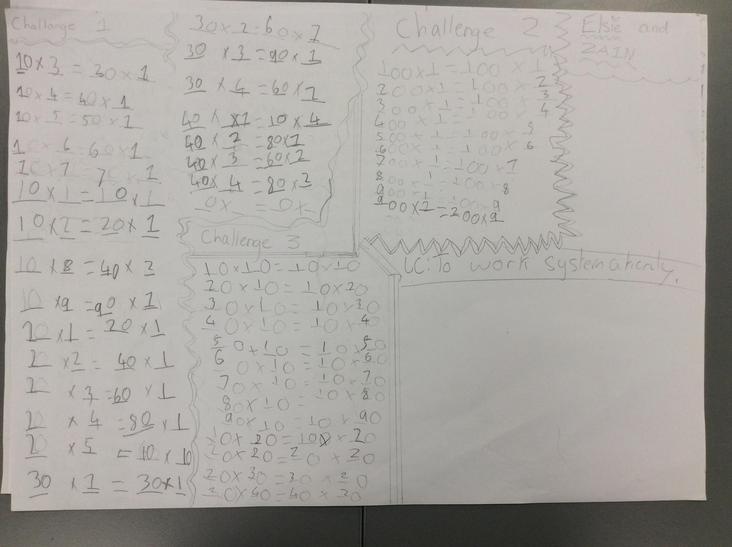 Challange 1
10 x 3 = 30 x 1
10 x 4 = 40 x 1
10 x 5 = 50 x 1
10 x 6 = 60 x 1
10 x 7 = 70 x 1
10 x 1 = 10 x 1
10 x 2 = 20 x 1
10 x 8 = 40 x 2
10 x 9 = 90 x 1
20 x 1 = 20 x 1
20 x 2 = 40 x 1
20 x 3 = 60 x 1
20 x 4 = 80 x 1
20 x 5 = 10 x 10
30 x 1 = 30 x 1
30 x 2 = 60 x 1
30 x 3 = 90 x 1
30 x 4 = 60 x 2
40 x 1 = 10 x 4
40 x 2 = 80 x 1
40 x 3 = 60 x 2
40 x 4 = 80 x 2
Challenge 2
100 x 1 = 100 x 1
200 x 1 = 100 x 2
300 x 1 = 100 x 3
400 x 1 = 100 x 4
500 x 1 = 100 x 5
600 x 1 = 100 x 6
700 x 1 = 100 x 7
800 x 1 = 100 x 8
900 x 1 = 100 x 9
900 x 2 = 200 x 9
Elsie and
ZAIN
Challenge 3
10 x 10 = 10 x 10
20 x 10 = 10 x 20
30 x 10 = 10 x 30
40 x 10 = 10 x 40
50 x 10 = 10 x 50
60 x 10 = 10 x 60
70 x 10 = 10 x 70
80 x 10 = 10 x 80
90 x 10 = 10 x 90
20 x 20 = 20 x 20
20 x 30 = 30 x 20
LC: To work systematicnly.